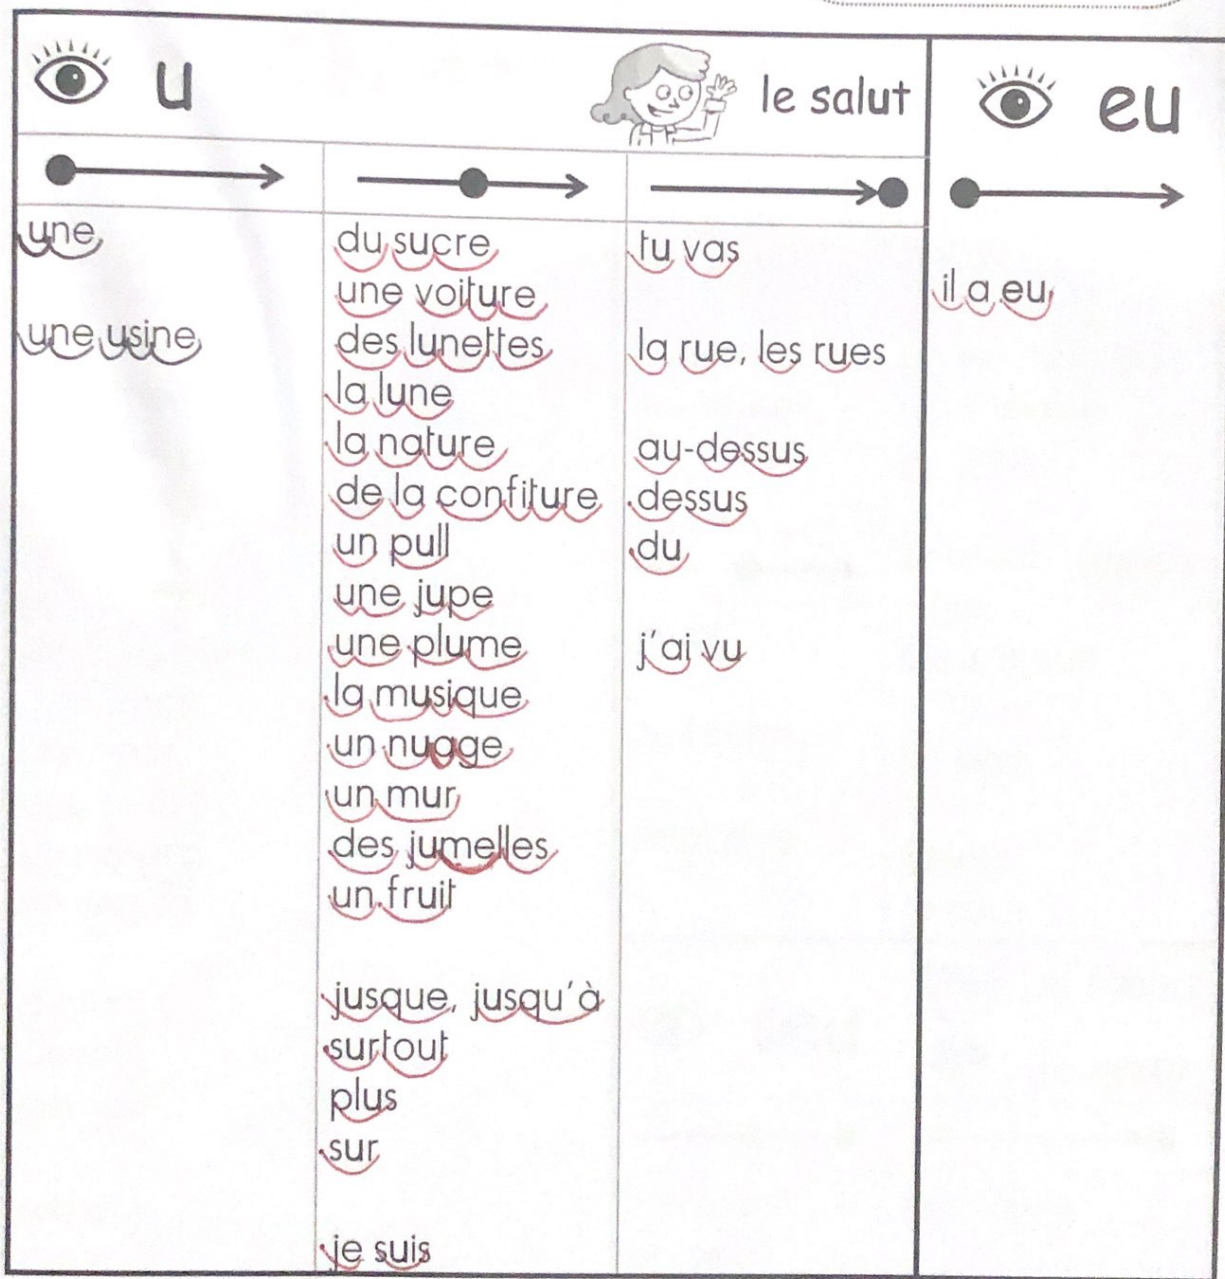 u
le salut
eu
une
une usine
du sucre
une voiture
des lunettes
la lune
la nature
de la confiture
un pull
une jupe
une plume
la musique
un nuage
un mur
des jumelles
un fruit
jusque, jusqu'à
surtout
plus
sur
je suis
tu vas
la rue, les rues
au-dessus
dessus
du
j'ai vu
il a eu